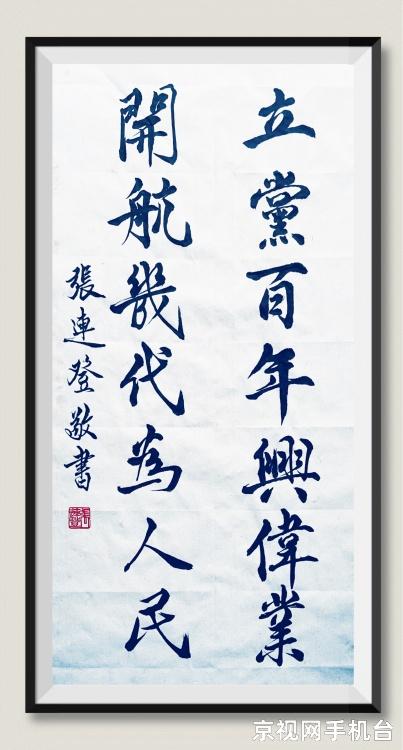 立黨百年興偉業
開航幾代為人民
張連登敬書
京视网手机台